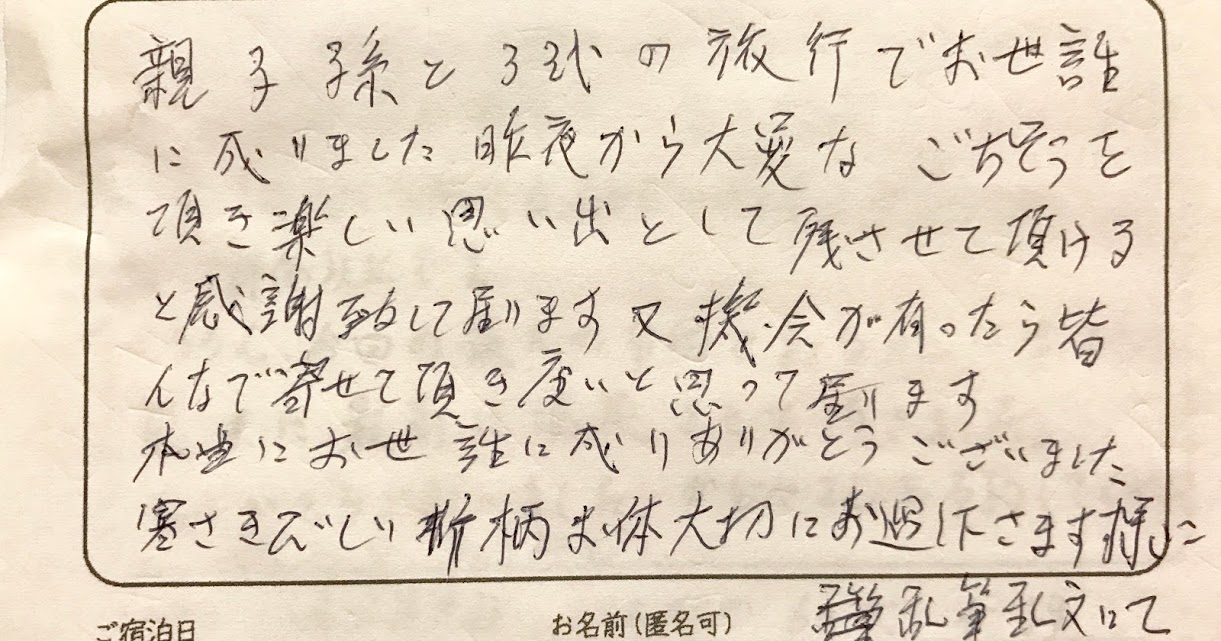 親子孫と3代の旅行でお世話
に成りました昨夜から大変なごちそうを
頂き楽しい思い出として残させて頂ける
と感謝致して居ります又機会が有ったら皆
んなで寄せて頂き度いと思って居ります
本当にお世話に成りありがとうございました
寒さきびしい折柄お体大切にお過し下さます様に
乱筆乱文にて
ご宿泊日 お名前(匿名可)